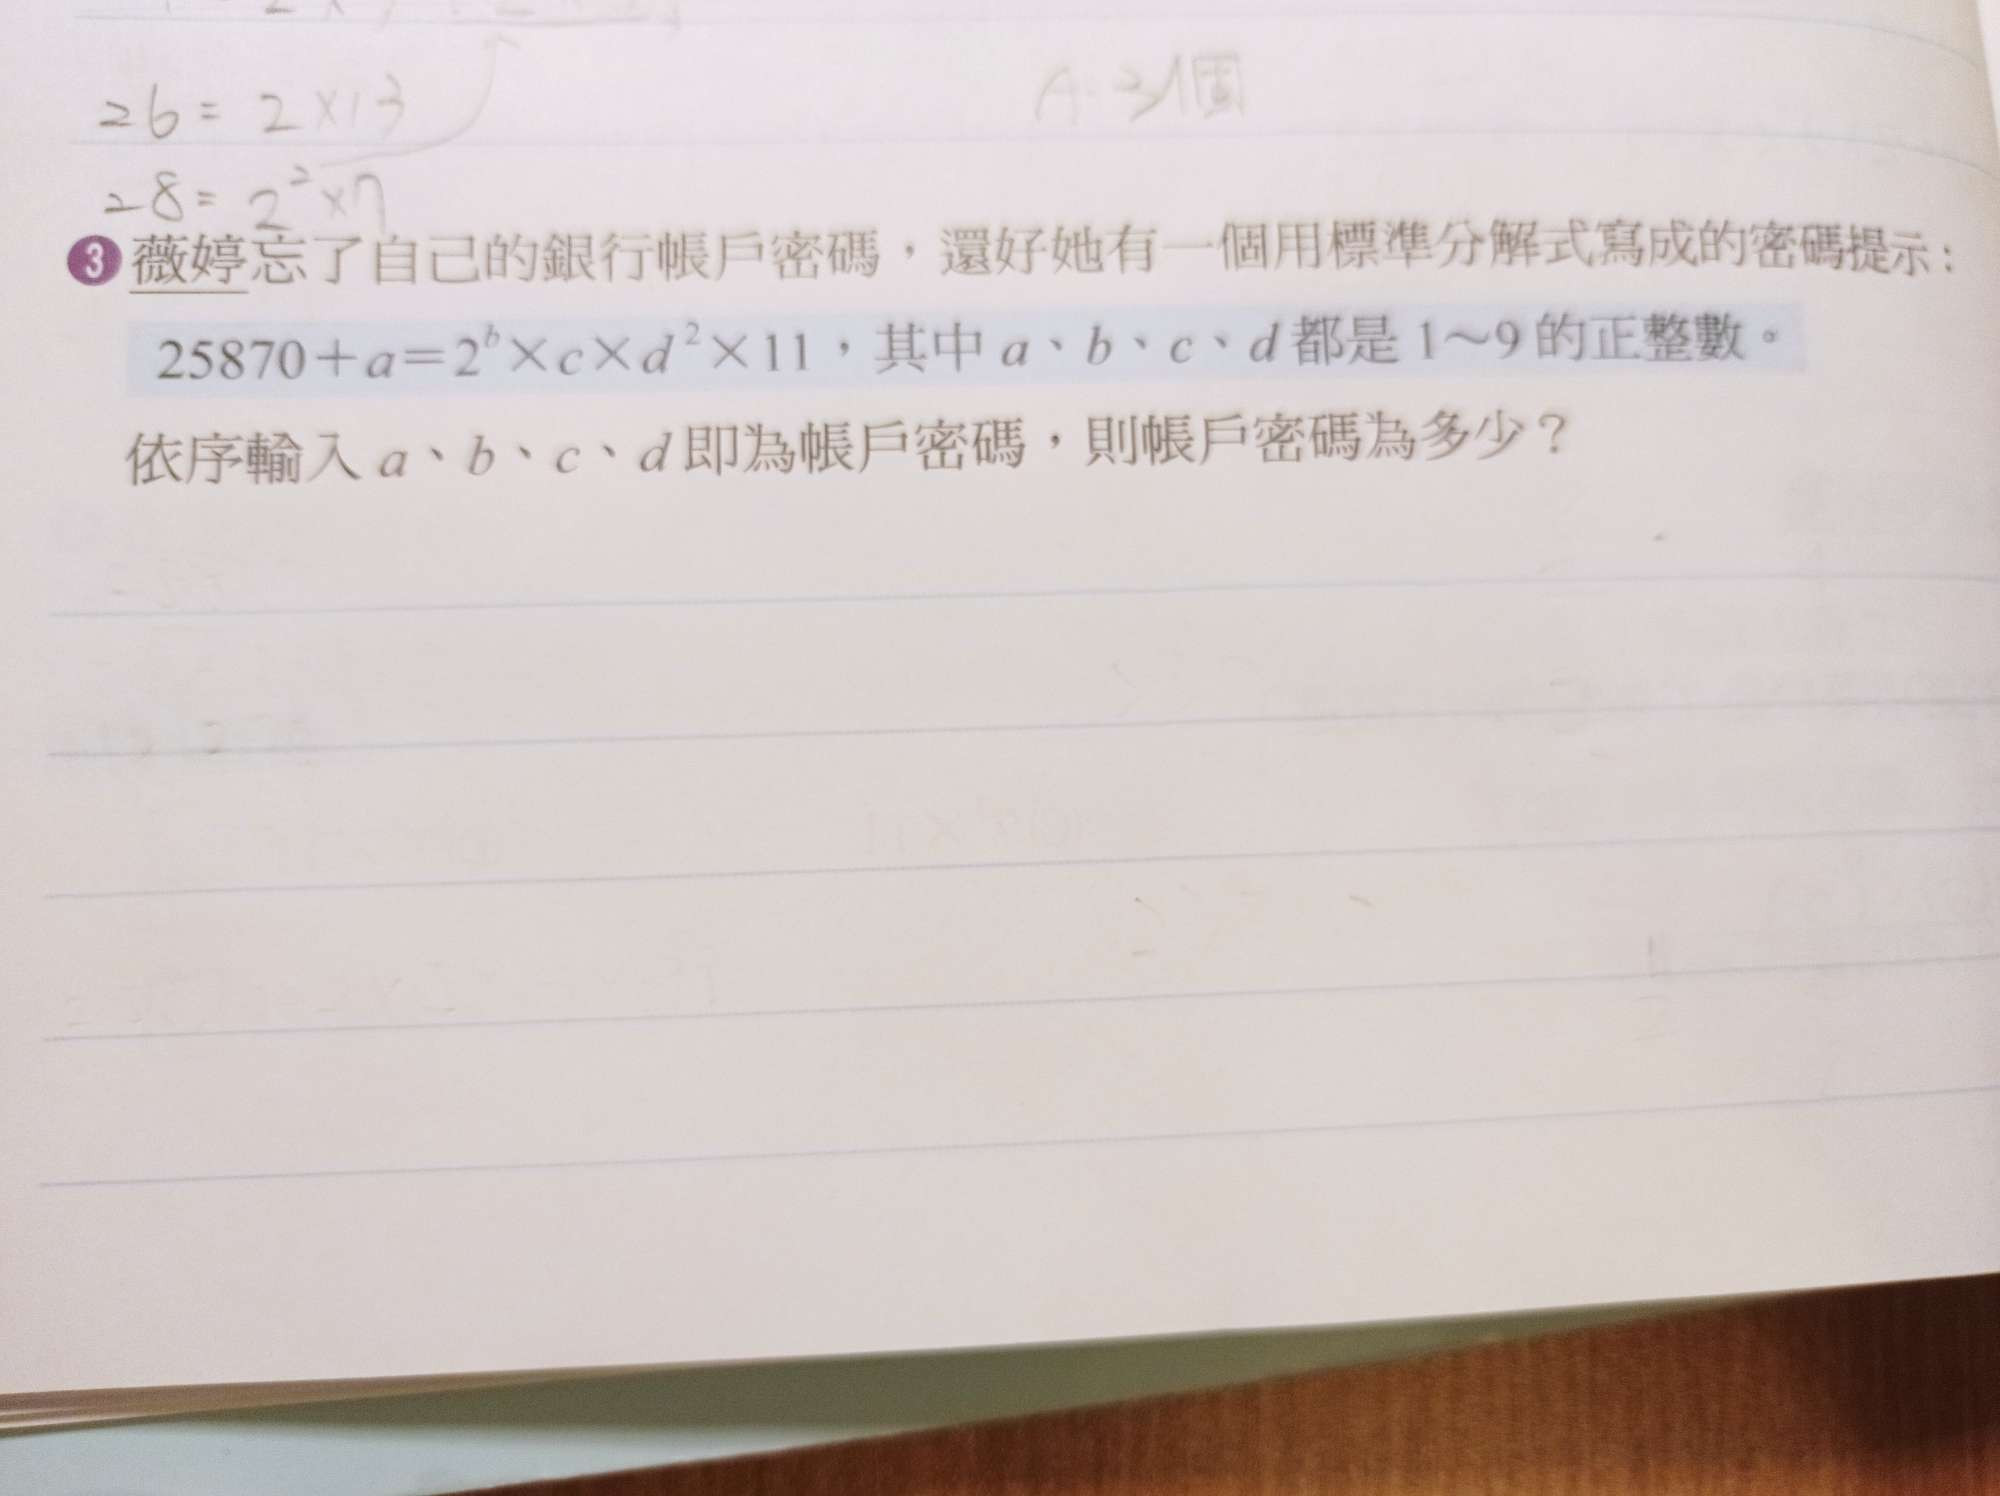 26 = 2 × 13
A: 3個
28 = 2² × 7
3 薇婷忘了自己的銀行帳戶密碼，還好她有一個用標準分解式寫成的密碼提示：
25870＋a＝2ᵇ×c×d²×11，其中 a、b、c、d 都是 1～9 的正整數。
依序輸入 a、b、c、d 即為帳戶密碼，則帳戶密碼為多少？